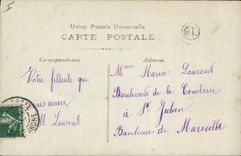 Union Postale Universelle
CARTE POSTALE
Correspondance
Adresse
Votre filleule qui
vous aime
M Laurent
Mme Maria Laurent
Boulevard de la Comtesse
à St Julien
Banlieue de Marseille